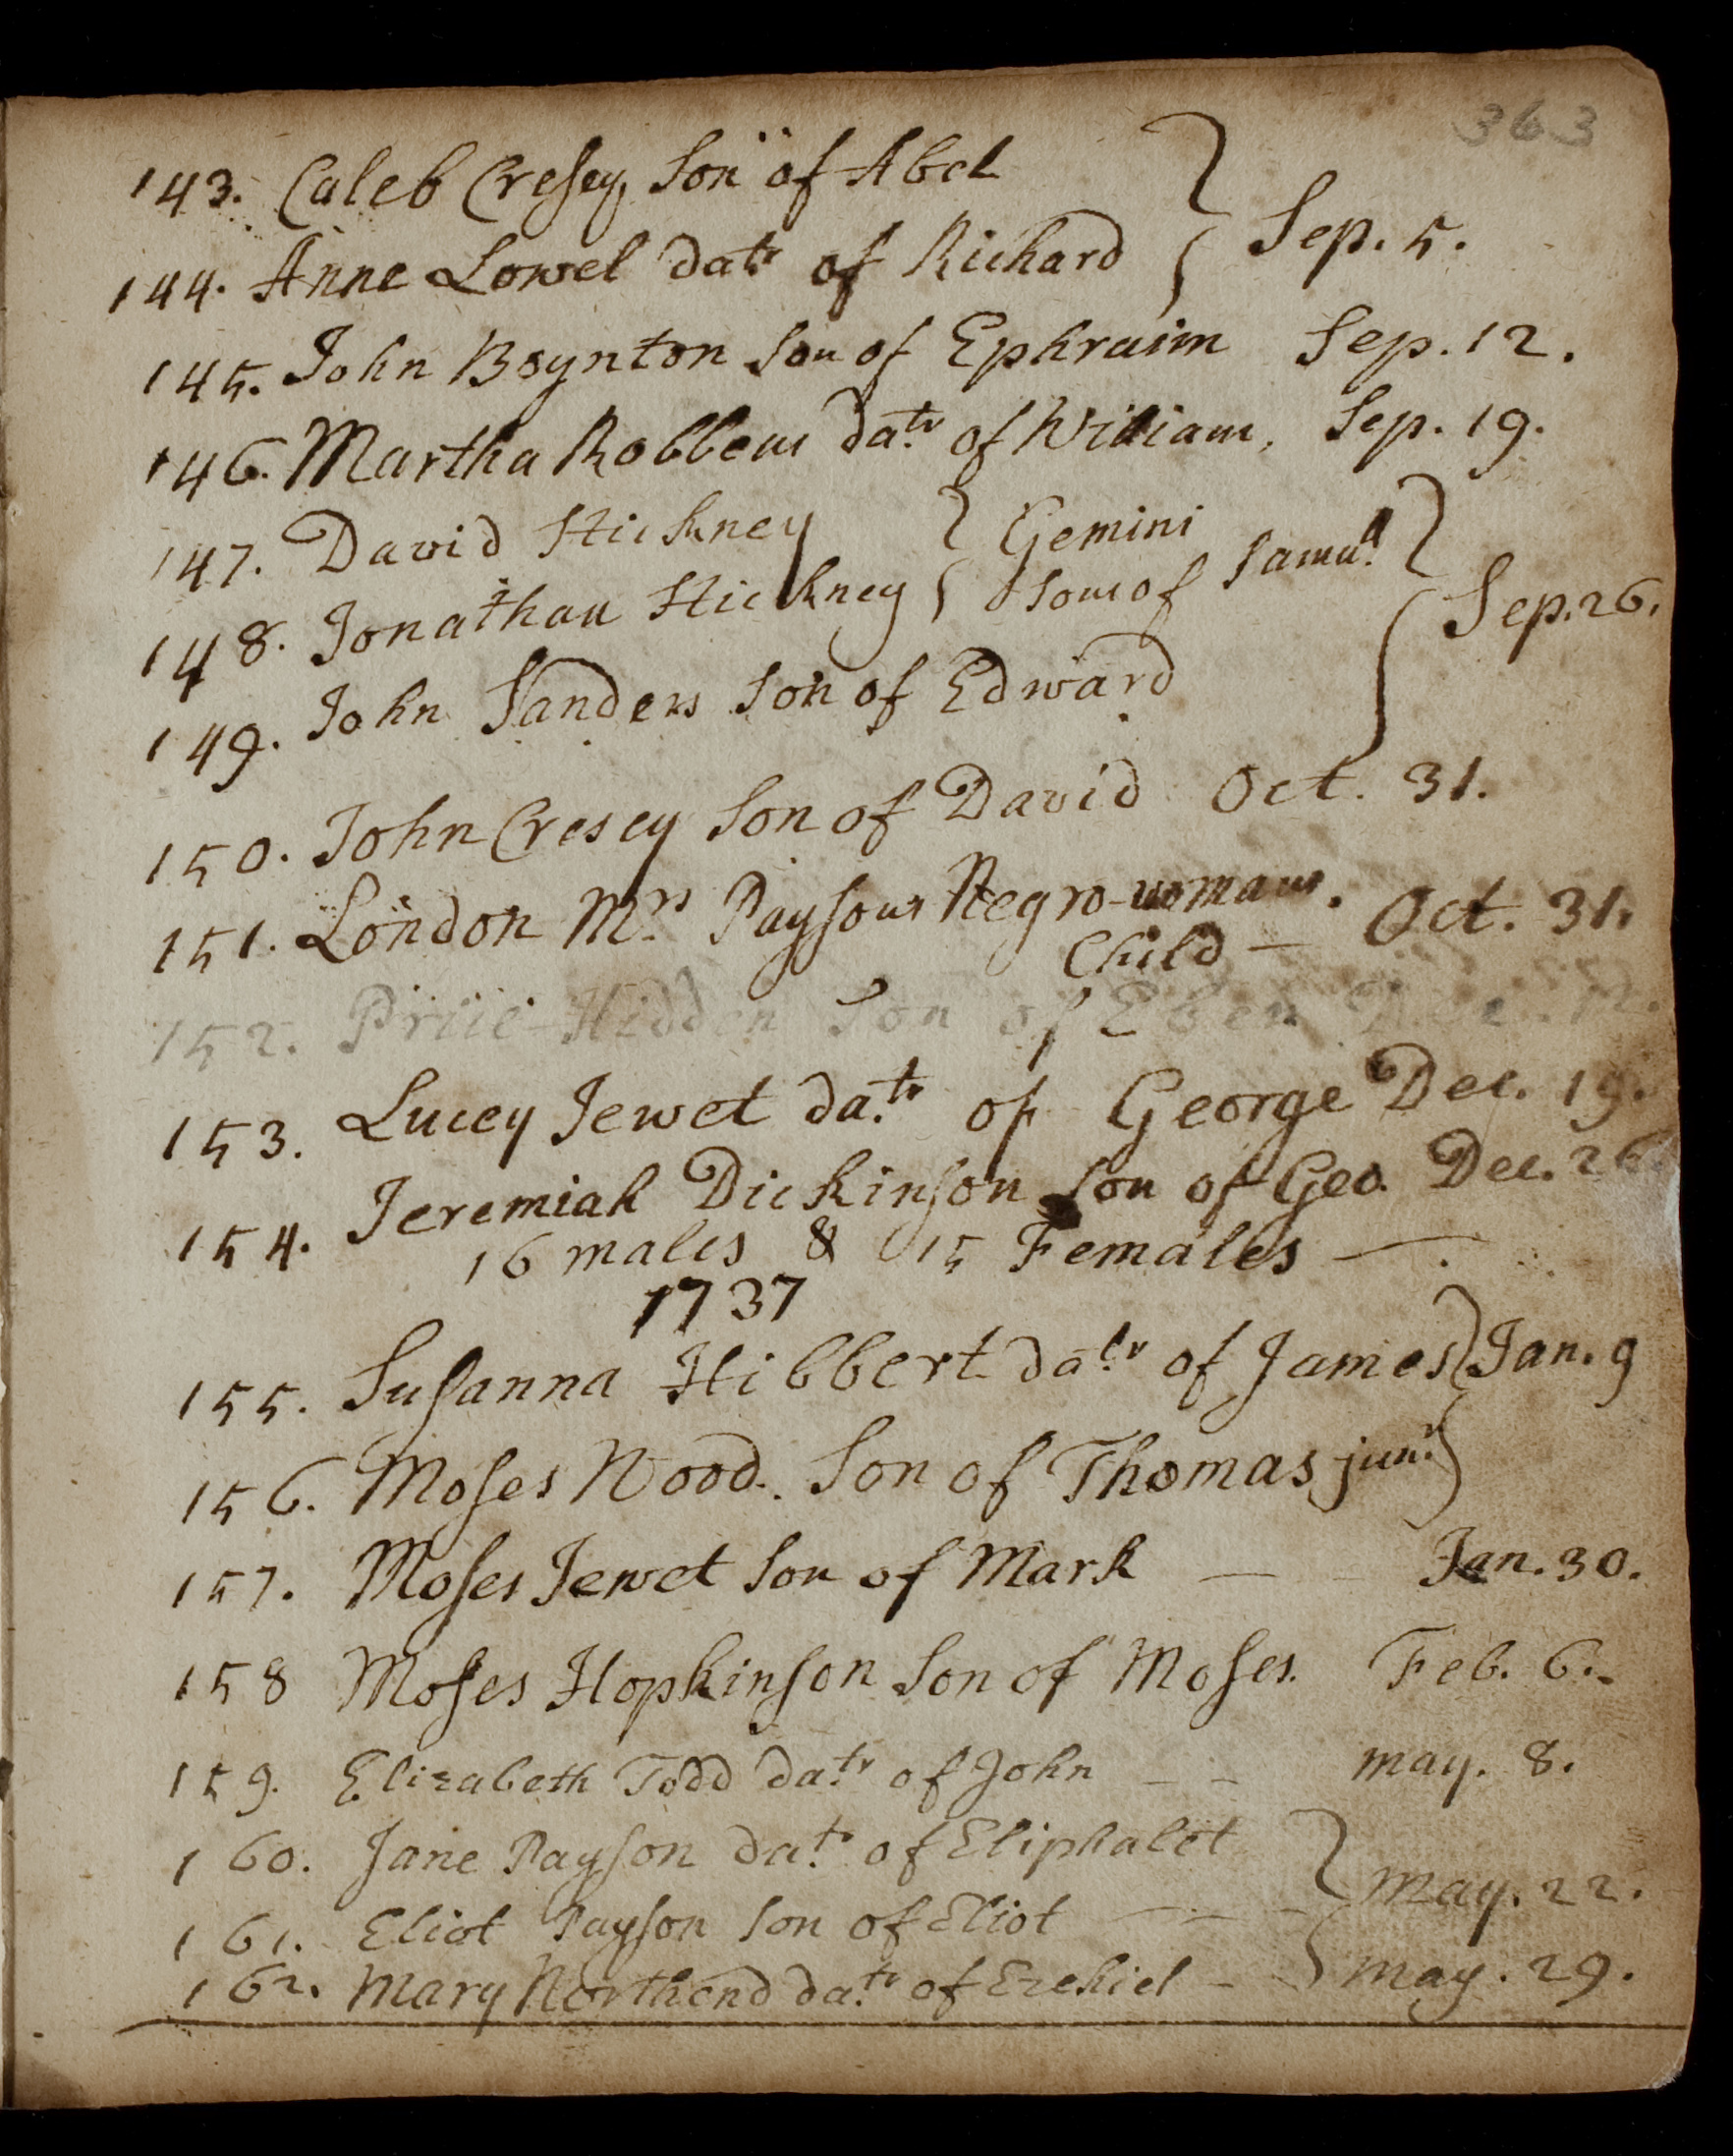 363
143. Caleb Cresey Son of Abel
144. Anne Lowel datr of Richard } Sep. 5.
145. John Boynton Son of Ephraim Sep. 12.
146. Martha Robbens datr of William, Sep. 19.
147. David Stickney } Gemini
148. Jonathan Stickney { Sons of Samull } Sep. 26.
149. John Sanders Son of Edward
150. John Cresey Son of David Oct. 31.
151. London Mrs Paysons Negro-womans.
Child — Oct. 31.
152. Hidden Son of Eben
153. Lucey Jewet datr of George Dec. 19.
154. Jeremiah Dickinson Son of Geo. Dec. 26
16 males & 15 Females —
1737
155. Susanna Hibbert datr of James } Jan. 9
156. Moses Wood. Son of Thomas junr
157. Moses Jewet Son of Mark — Jan. 30.
158 Moses Hopkinson Son of Moses. Feb. 6.
159. Elizabeth Todd datr of John — — may. 8.
160. Jane Payson datr of Eliphalet } may. 22.
161. Eliot Payson Son of Eliot —
162. Mary Northend datr of Ezekiel — { may. 29.